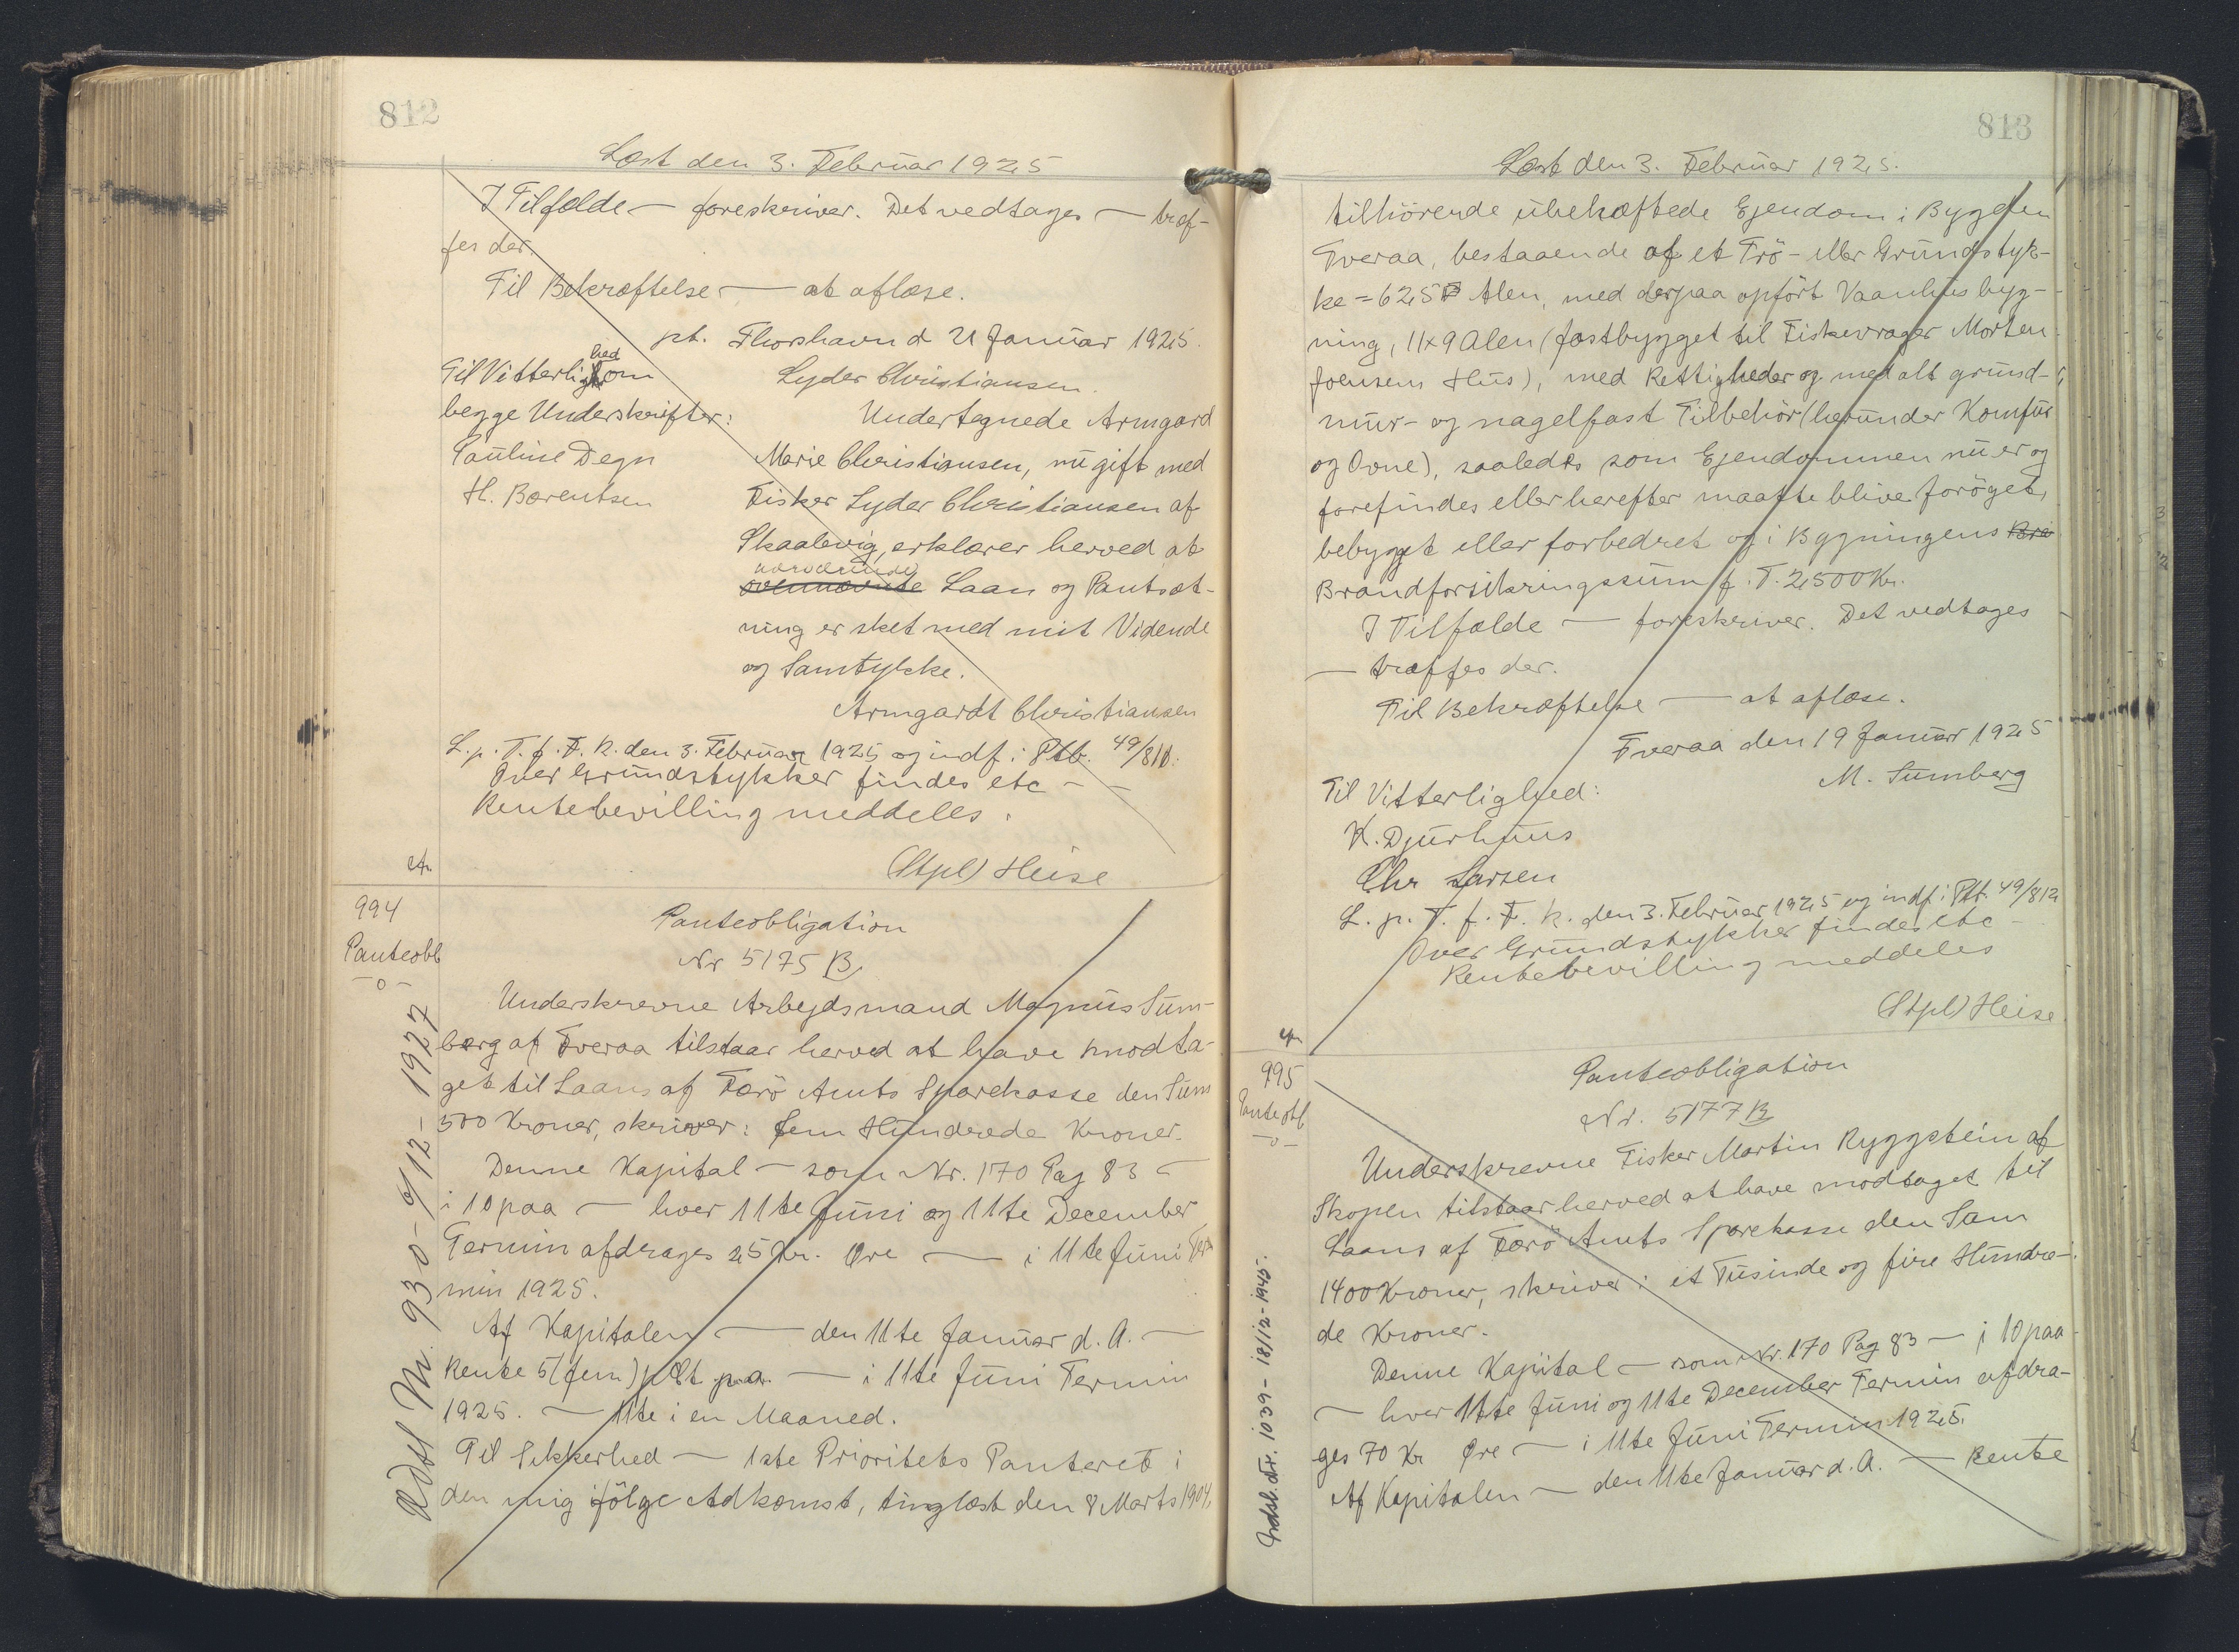 812
Læst den 3. Februar 1925
I Tilfælde — foreskriver. Det vedtages — træf-
fes der.
Til Bekræftelse — at aflæse.
pt. Thorshavn d 21 Januar 1925.
Til Vitterlighed om
Lyder Christiansen.
begge Underskrifter:
Undertegnede Armgard
Pauline Degn
Marie Christiansen, nu gift med
H. Barentsen
Fisker Lyder Christiansen af
Skaalevig, erklærer herved at
nærværende
ovennævnte Laan og Pantsæt-
ning er sket med mit Vidende
og Samtykke.
Armgardt Christiansen
L. p. T. f. F. K. den 3. Februar 1925 og indf. i Ptb. 49/810.
Over Grundstykker findes etc - -
Rentebevilling meddeles.
(Stpl) Heise
994
Panteobl
-o-
Panteobligation
Nr 5175 B
Underskrevne Arbejdsmand Magnus Sum-
berg af Tveraa tilstaar herved at have modta-
get til Laans af Færö Amts Sparekasse den Sum
500 Kroner, skriver: fem Hundrede Kroner.
Denne Kapital — som Nr. 170 Pag 83 —
i 10 paa — hver 11te Juni og 11te December
Termin afdrages 25 Kr. Øre — i 11te Juni Ter-
min 1925.
Af Kapitalen — den 11te Januar d. A. —
Rente 5 (fem) pCt p.a. — i 11te Juni Termin
1925. — 11te i en Maaned.
Til Sikkerhed — 1ste Prioritets Panteret i
den mig ifölge Adkomst, tinglæst den 8 Marts 1904,
Udsl Nr. 930 - 9/12 - 1927
813
Læst den 3. Februar 1925.
tilhörende ubehæftede Ejendom i Bygden
Tveraa, bestaaende af et Trö- eller Grundstyk-
ke = 625 Alen, med derpaa opfört Vaanhusbyg-
ning, 11x9 Alen (fastbygget til Fiskevrager Morten
Joensens Hus), med Rettigheder og med alt grund-
mur- og nagelfast Tilbehör (herunder Komfur
og Ovne), saaledes som Ejendommen nu er og
forefindes eller herefter maatte blive foröget,
bebygget eller forbedret og i Bygningens Bra
Brandforsikringssum p. T. 2500 Kr.
I Tilfælde — foreskriver. Det vedtages
— træffes der.
Til Bekræftelse — at aflæse.
Tveraa den 19 Januar 1925
M. Sumberg
Til Vitterlighed:
K. Djurhuus
Chr Larsen
L. p. T. f. F. K. den 3. Februar 1925 og indf. i Ptb. 49/812
Over Grundstykker findes etc -
Rentebevilling meddeles
(Stpl) Heise.
995
Panteobl
-o-
Panteobligation
Nr. 5177 B
Underskrevne Fisker Martin Ryggstein af
Skopen tilstaar herved at have modtaget til
Laans af Færö Amts Sparekasse den Sum
1400 Kroner, skriver: et Tusinde og fire Hundre-
de Kroner.
Denne Kapital — som Nr. 170 Pag 83 — i 10 paa
— hver 11te Juni og 11te December Termin afdra-
ges 70 Kr Øre — i 11te Juni Termin 1925.
Af Kapitalen — den 11te Januar d. A. — Rente
Udsl. Nr. 1039 - 18/12 - 1945.